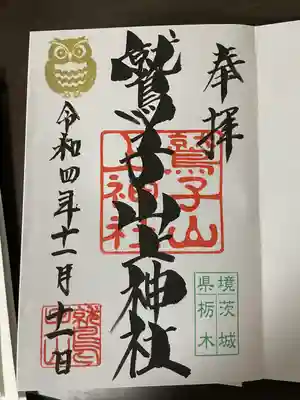 奉拝
鷲子山上神社
鷲子山
上神社
境茨城
県栃木
令和四年十一月十一日